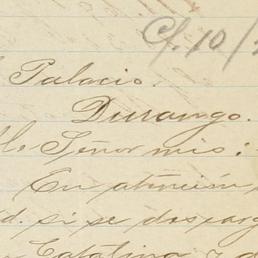 Cf. 10/
Palacio.
Durango.
Señor mio:
En atención
d. si se despar
Catalina y d